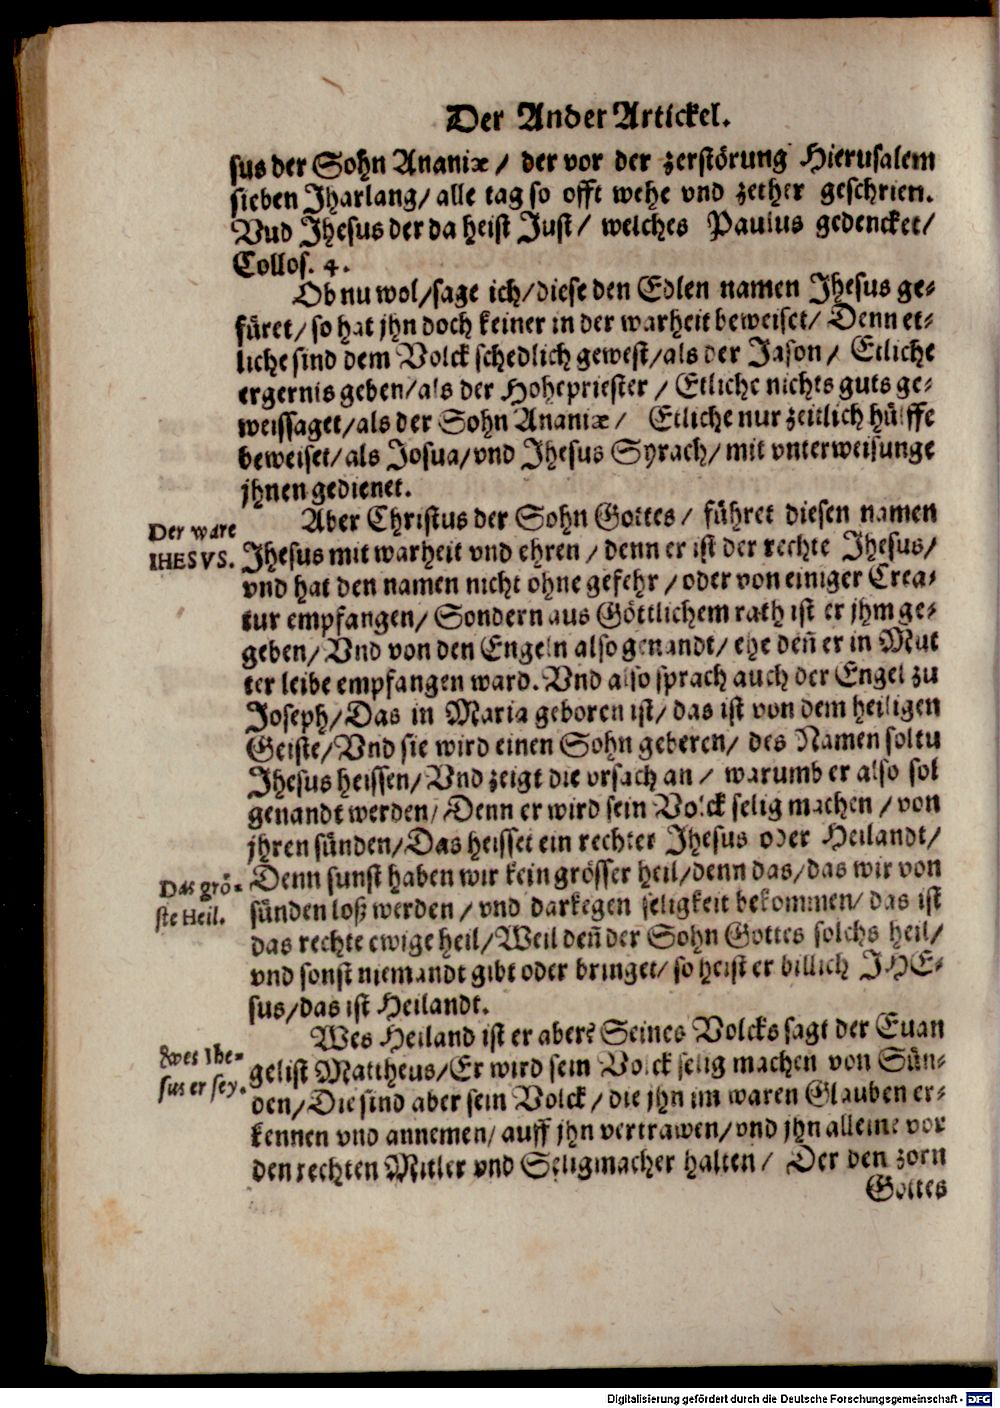 Der Ander Artickel.
sus der Sohn Ananiæ / der vor der zerstörung Hierusalem
sieben Jharlang / alle tag so offt wehe vnd zether geschrien.
Vnd Jhesus der da heist Just / welches Paulus gedencket /
Collos. 4.
Ob nu wol / sage ich / diese den Edlen namen Jhesus ge-
füret / so hat jhn doch keiner in der warheit beweiset / Denn et-
liche sind dem Volck schedlich gewest / als der Jason / Etliche
ergernis geben / als der Hohepriester / Etliche nichts guts ge-
weissaget / als der Sohn Ananiæ / Etliche nur zeitlich hülffe
beweiset / als Josua / vnd Jhesus Syrach / mit vnterweisunge
jhnen gedienet.
Aber Christus der Sohn Gottes / führet diesen namen
Der ware
IHESVS.
Jhesus mit warheit vnd ehren / denn er ist der rechte Jhesus /
vnd hat den namen nicht ohne gefehr / oder von einiger Crea-
tur empfangen / Sondern aus Göttlichem rath ist er jhm ge-
geben / Vnd von den Engeln also genandt / ehe deñ er in Mut
ter leibe empfangen ward. Vnd also sprach auch der Engel zu
Joseph / Das in Maria geboren ist / das ist von dem heiligen
Geiste / Vnd sie wird einen Sohn geberen / des Namen soltu
Jhesus heissen / Vnd zeigt die vrsach an / warumb er also sol
genandt werden / Denn er wird sein Volck selig machen / von
jhren sünden / Das heisset ein rechter Jhesus oder Heilandt /
Das grö-
ste Heil.
Denn sunst haben wir kein grösser heil / denn das / das wir von
sünden loß werden / vnd darkegen seligkeit bekommen / das ist
das rechte ewige heil / Weil deñ der Sohn Gottes solchs heil /
vnd sonst niemandt gibt oder bringet / so heist er billich JHE-
sus / das ist Heilandt.
Wes Heiland ist er aber? Seines Volcks sagt der Euan
Wes Ihe-
sus er sey.
gelist Mattheus / Er wird sein Volck selig machen von Sün-
den / Die sind aber sein Volck / die jhn im waren Glauben er-
kennen vnd annemen / auff jhn vertrawen / vnd jhn alleine vor
den rechten Mitler vnd Seligmacher halten / Der den zorn
Gottes
Digitalisierung gefördert durch die Deutsche Forschungsgemeinschaft - DFG